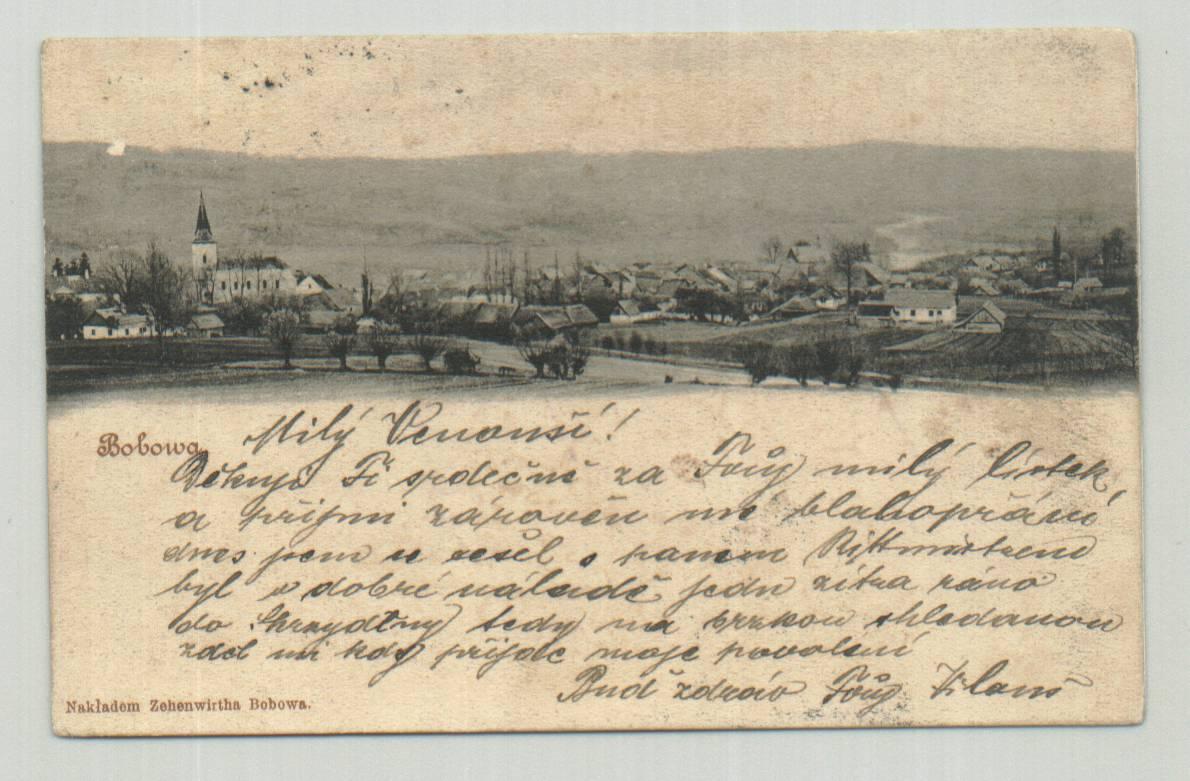 Bobowa
Milý Venouši!
Děkuji Ti srdečně za Tvůj milý lístek,
a přijmi zároveň mé blahopřání
dnes jsem se sešel s panem
byl v dobré náladě jedu zítra ráno
do tedy na brzkou shledanou
zděl mi kdy přijde moje povolení
Buď zdráv Tvůj
Nakładem Zehenwirtha Bobowa.